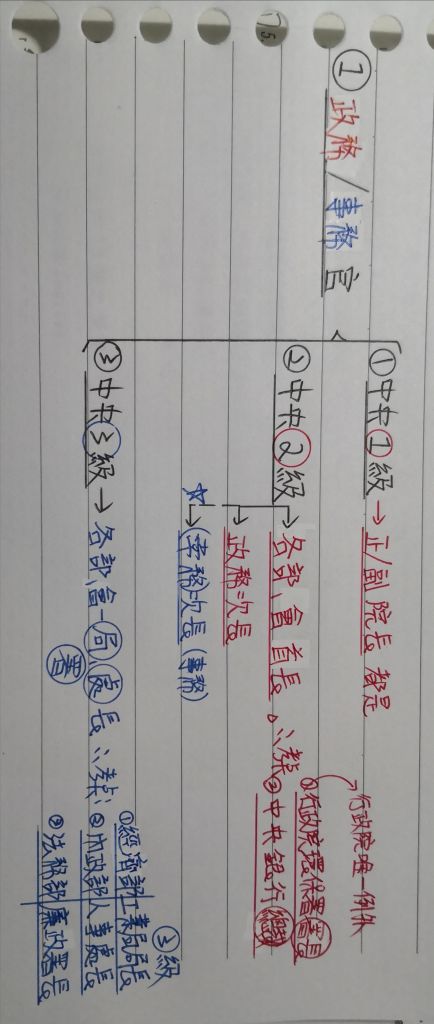 ① 政務/事務官
①中央①級→正/副院長都是
行政院唯一例外
②中央②級→各部、會首長。∴考
①行政院環保署署長
②中央銀行總裁
→政務次長
☆→事務次長(事務)
③中央3級→各部、會—局、處長∴考:
署
3級
①經濟部工業局局長
②內政部人事處長
③法務部廉政署長